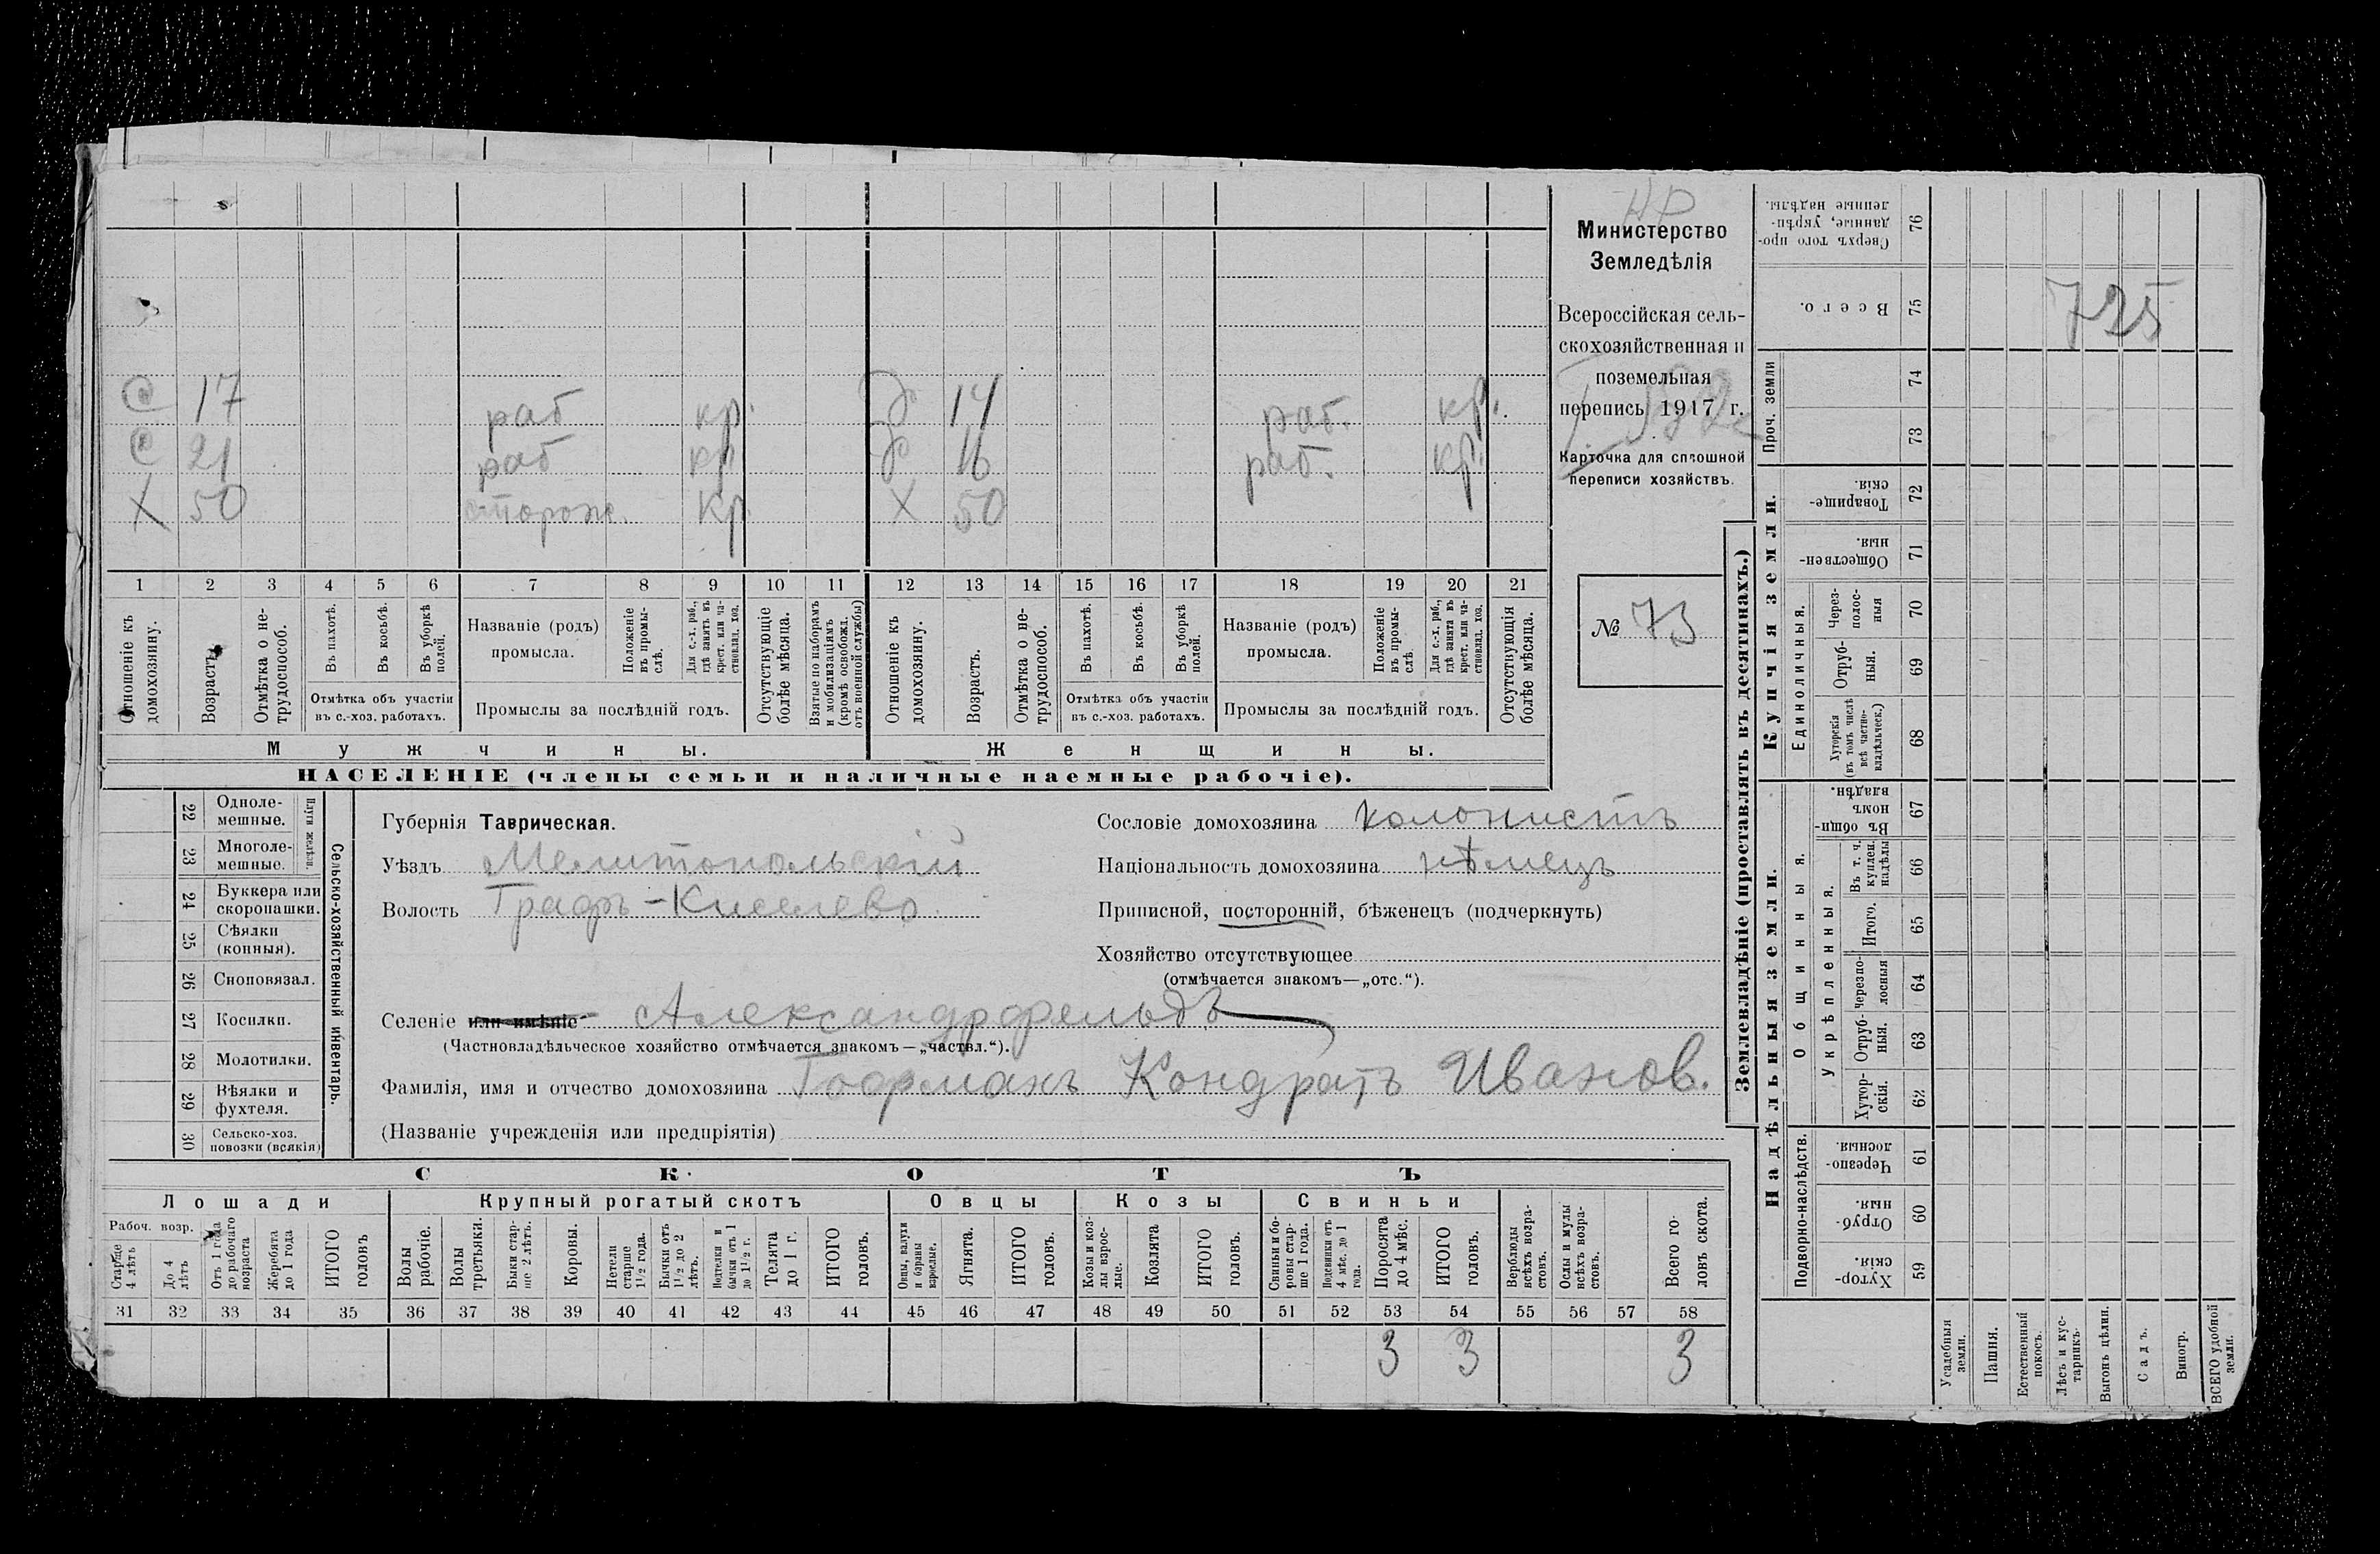 НР
Министерство
Земледѣлія
Всероссійская сель-
скохозяйственная и
поземельная
перепись 1917 г.
Карточка для сплошной
переписи хозяйствъ.
№ 73
С 17 раб кр. Д 14 раб. кр.
С 21 раб кр. Д 16 раб. кр.
Х 50 сторож. кр. Х 50
1 2 3 4 5 6 7 8 9 10 11 12 13 14 15 16 17 18 19 20 21
Отношеніе къ домохозяину.
Возрастъ.
Отмѣтка о не-трудоспособ.
Въ пахотѣ.
Въ косьбѣ.
Въ уборкѣ полей.
Отмѣтка объ участіи
въ с.-хоз. работахъ.
Названіе (родъ)
промысла.
Положеніе въ промы-слѣ.
Для с.-х. раб., гдѣ занятъ въ крест. или ча-стновлад. хоз.
Промыслы за послѣдній годъ.
Отсутствующіе болѣе мѣсяца.
Взятые по наборамъ и мобилизаціямъ (кромѣ освобожд. отъ военной службы)
Отношеніе къ домохозяину.
Возрастъ.
Отмѣтка о не-трудоспособ.
Въ пахотѣ.
Въ косьбѣ.
Въ уборкѣ полей.
Отмѣтка объ участіи
въ с.-хоз. работахъ.
Названіе (родъ)
промысла.
Положеніе въ промы-слѣ.
Для с.-х. раб., гдѣ занята въ крест. или ча-стновлад. хоз.
Промыслы за послѣдній годъ.
Отсутствующія болѣе мѣсяца.
Мужчины.
Женщины.
НАСЕЛЕНІЕ (члены семьи и наличные наемные рабочіе).
22 Одноле-мешные.
23 Многоле-мешные.
Плуги желѣзн.
24 Буккера или скоропашки.
25 Сѣялки (конныя).
26 Сноповязал.
27 Косилки.
28 Молотилки.
29 Вѣялки и фухтеля.
30 Сельско-хоз. повозки (всякія)
Сельско-хозяйственный инвентарь.
Губернія Таврическая.
Уѣздъ Мелитопольскій
Волость Графъ-Киселево
Сословіе домохозяина колонистъ
Національность домохозяина нѣмецъ
Приписной, посторонній, бѣженецъ (подчеркнуть)
Хозяйство отсутствующее
(отмѣчается знакомъ—„отс.“).
Селеніе или имѣніе Александрфельдъ
(Частновладѣльческое хозяйство отмѣчается знакомъ—„частвл.“).
Фамилія, имя и отчество домохозяина Гофманъ Кондратъ Иванов.
(Названіе учрежденія или предпріятія)
СКОТЪ
Лошади
Крупный рогатый скотъ
Овцы
Козы
Свиньи
Рабоч. возр.
Старше 4 лѣтъ
До 4 лѣтъ
Отъ 1 года до рабочаго возраста
Жеребята до 1 года
ИТОГО головъ
Волы рабочіе.
Волы третьяки.
Быки стар-ше 2 лѣтъ.
Коровы.
Нетели старше 1½ года.
Бычки отъ 1½ до 2 лѣтъ.
Подтелки и бычки отъ 1 до 1½ г.
Телята до 1 г.
ИТОГО головъ.
Овцы, валухи и бараны взрослые.
Ягнята.
ИТОГО головъ.
Козы и коз-лы взрос-лые.
Козлята
ИТОГО головъ.
Свиньи и бо-ровы стар-ше 1 года.
Подсвинки отъ 4 мѣс. до 1 года.
Поросята до 4 мѣс.
ИТОГО головъ.
Верблюды всѣхъ возра-стовъ.
Ослы и мулы всѣхъ возра-стовъ.
Всего го-ловъ скота.
31 32 33 34 35 36 37 38 39 40 41 42 43 44 45 46 47 48 49 50 51 52 53 54 55 56 57 58
3 3 3
Землевладѣніе (проставлять въ десятинахъ.)
Надѣльныя земли.
Купчія земли.
Проч. земли
Подворно-наслѣдств.
Общинныя.
Укрѣпленныя.
Единоличныя.
Сверхъ того про-данные, укрѣп-ленные надѣлы. 76
Всего. 75
725
74
73
Товарище-скія. 72
Обществен-ныя. 71
Через-полос-ныя 70
Отруб-ныя. 69
Хуторскія (въ томъ числѣ всѣ частно-владѣльческ.) 68
Въ общи-номъ владѣн. 67
Въ т. ч. куплен. надѣлы 66
Итого. 65
Черезпо-лосныя 64
Отруб-ныя. 63
Хутор-скія. 62
Черезпо-лосныя 61
Отруб-ныя. 60
Хутор-скія. 59
Усадебныя земли.
Пашня.
Естественный покосъ.
Лѣсъ и кус-тарникъ.
Выгонъ цѣлин.
Садъ.
Виногр.
ВСЕГО удобной земли.